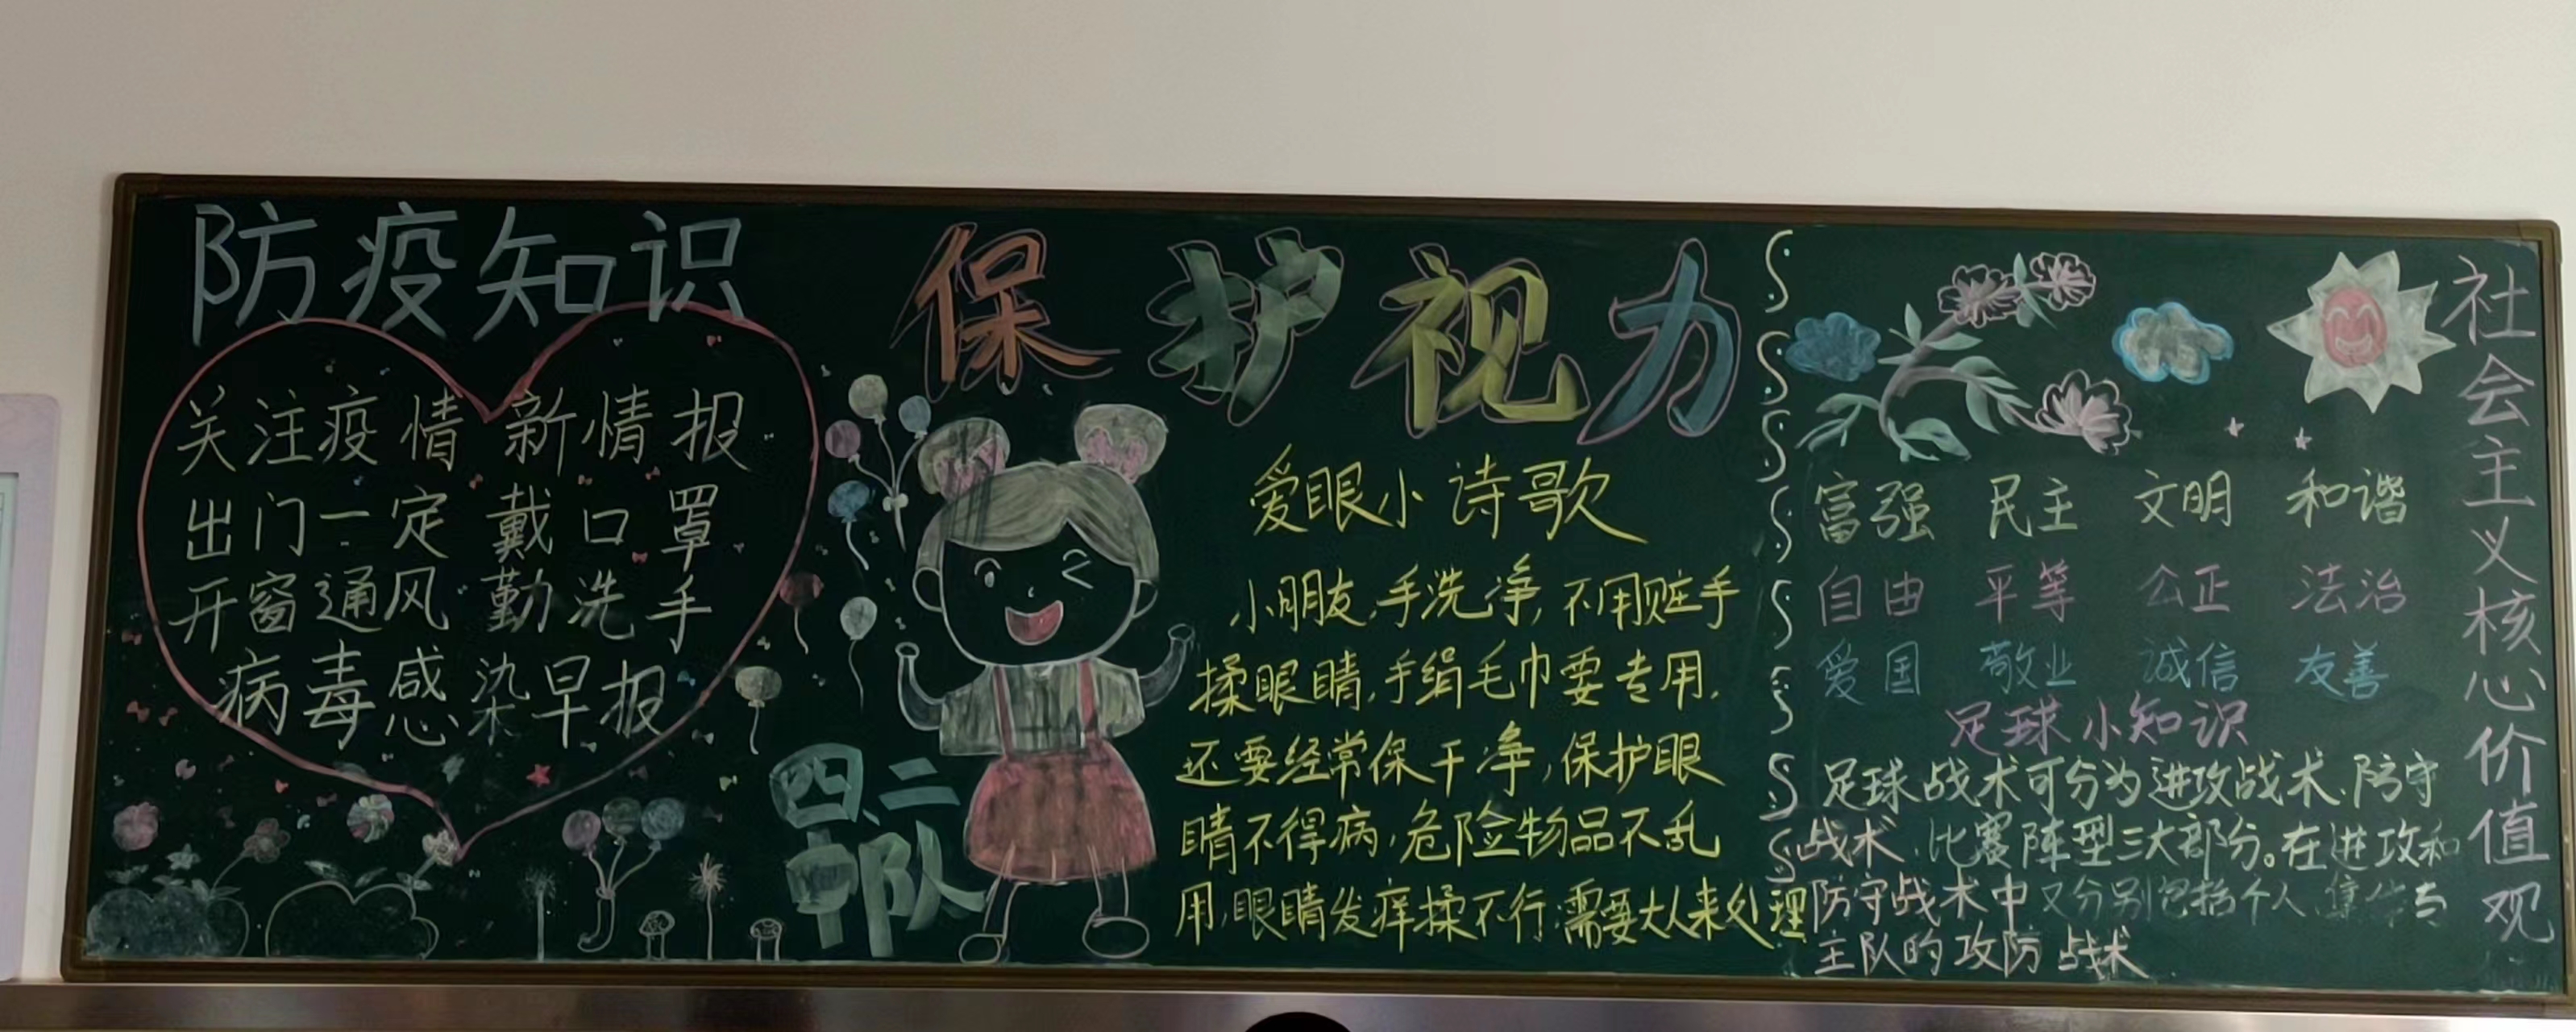 防疫知识
关注疫情 新情报
出门一定 戴口罩
开窗通风 勤洗手
病毒感染早报
四二
中队
保护视力
爱眼小诗歌
小朋友,手洗净,不用赃手
揉眼睛,手绢毛巾要专用,
还要经常保干净,保护眼
睛不得病,危险物品不乱
用,眼睛发痒揉不行,需要大人来处理
富强 民主 文明 和谐
自由 平等 公正 法治
爱国 敬业 诚信 友善
足球小知识
足球战术可分为进攻战术、防守
战术、比赛阵型三大部分。在进攻和
防守战术中又分别包括个人、集体与
主队的攻防战术
社会主义核心价值观